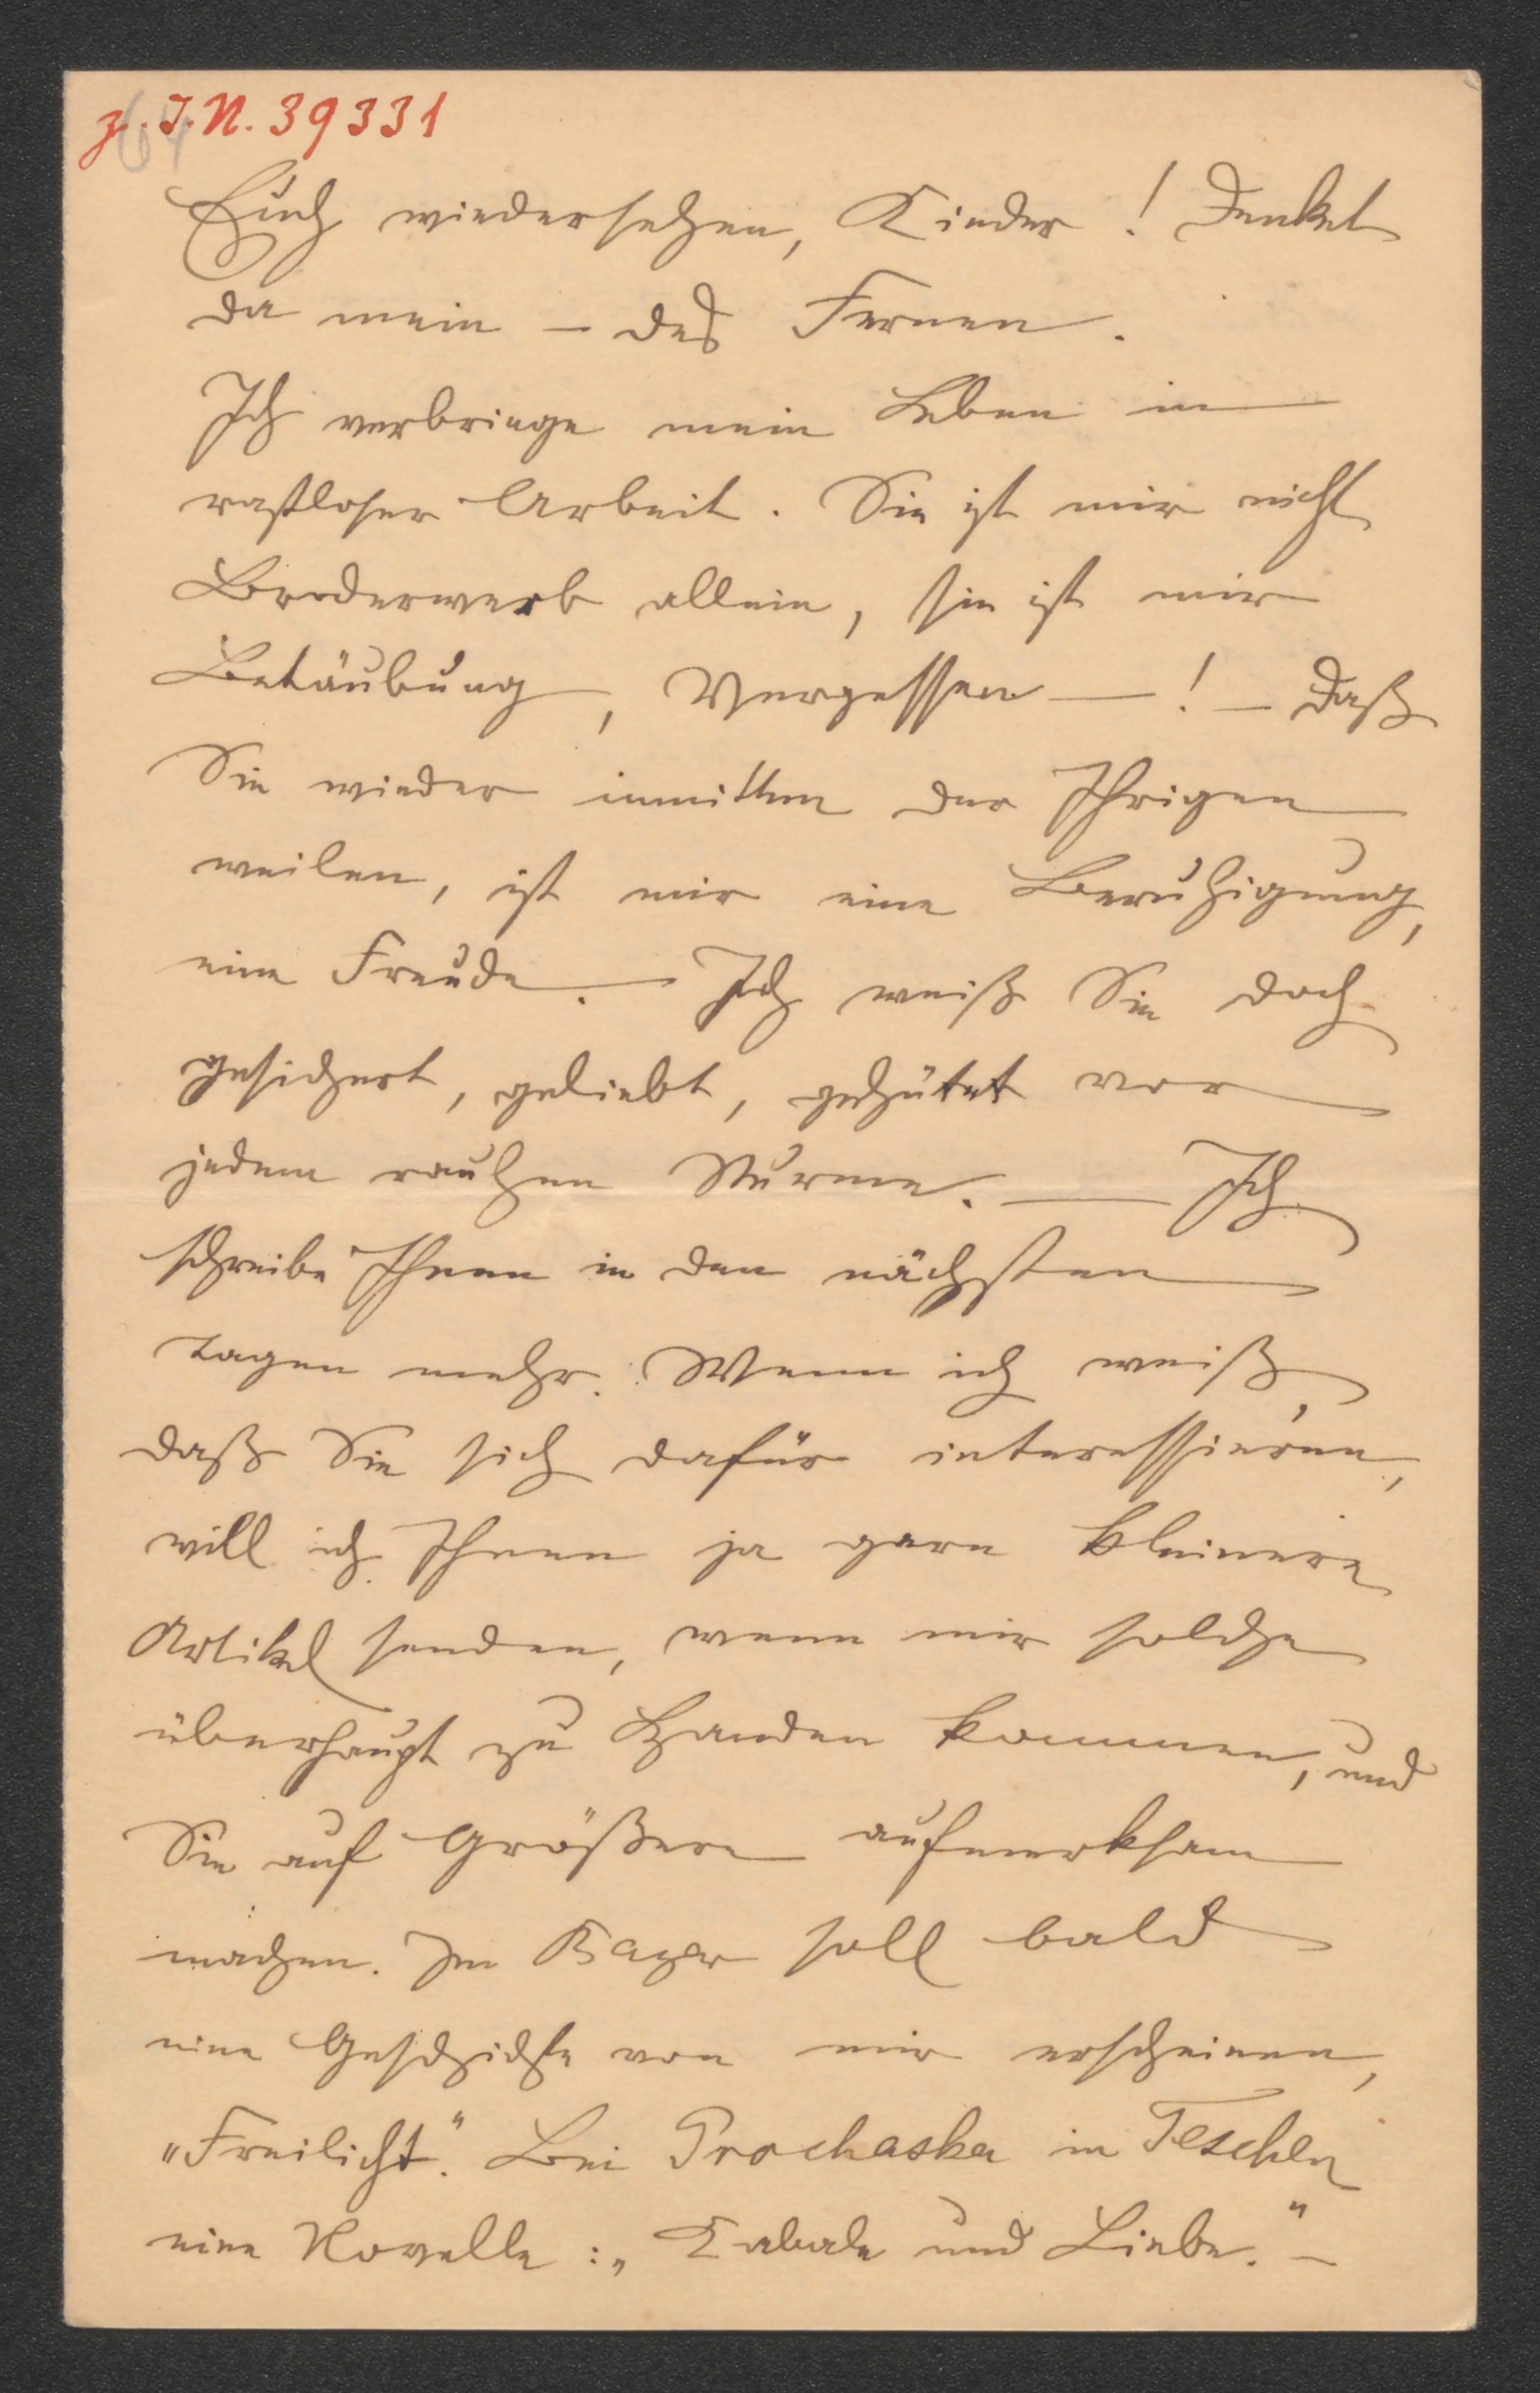 z. I. N. 39331
64
Euch wiedersehen, Kinder! Denket
da mein – des Fernen.
Ich verbringe mein Leben in
rastloser Arbeit. Sie ist mir nicht
Broderwerb allein, sie ist mir
Betäubung, Vergessen –! – Daß
Sie wieder inmitten der Ihrigen
weilen, ist mir eine Beruhigung,
eine Freude. – Ich weiß Sie doch
gesichert, geliebt, gehütet vor
jedem rauhen Sturme. – Ich
schreibe Ihnen in den nächsten
Tagen mehr. Wenn ich weiß,
daß Sie sich dafür interessieren,
will ich Ihnen ja gern kleinere
Artikel senden, wenn mir solche
überhaupt zu Handen kommen, und
Sie auf Größere aufmerksam
machen. Im Bazar soll bald
eine Geschichte von mir erscheinen,
„Freilicht." Bei Prochaska in Teschen
eine Novelle: „Kabale und Liebe." –